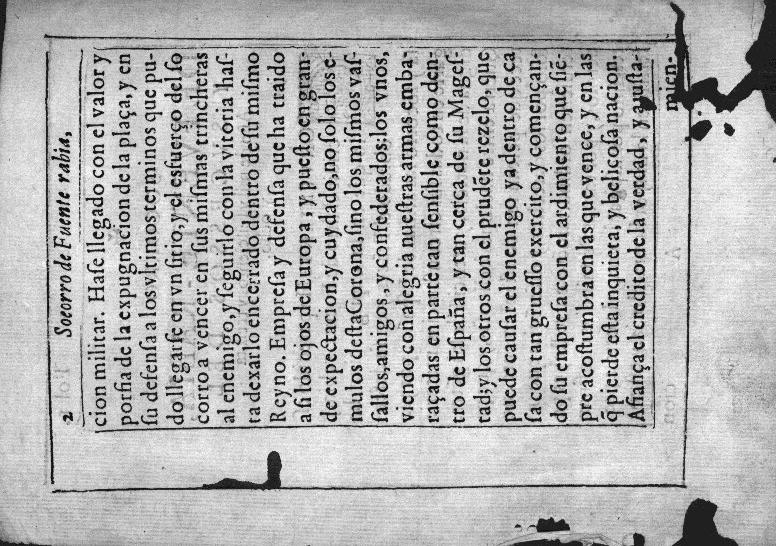 2 Socorro de Fuente rabia,
cion militar. Haſe llegado con el valor y
porfia de la expugnacion de la plaça, y en
ſu defenſa a los vltimos terminos que pu-
do llegarſe en vn ſitio, y el esfuerço del ſo
corro a vencer en ſus miſmas trincheras
al enemigo, y ſeguirlo con la vitoria haſ-
ta dexarlo encerrado dentro de ſu miſmo
Reyno. Empreſa y defenſa que ha traido
a ſi los ojos de Europa, y pueſto en gran-
de expectacion, y cuydado, no ſolo los e-
mulos deſta Corona, ſino los miſmos vaſ-
ſallos, amigos, y confederados: los vnos,
viendo con alegria nueſtras armas emba-
raçadas en parte tan ſenſible como den-
tro de Eſpaña, y tan cerca de ſu Mageſ-
tad; y los otros con el prudēte rezelo, que
puede cauſar el enemigo ya dentro de ca
ſa con tan grueſſo exercito, y començan-
do ſu empreſa con el ardimiento que ſiē-
pre acoſtumbra en las que vence, y en las
q̃ pierde eſta inquieta, y belicoſa nacion.
Afiança el credito de la verdad, y ajuſta-
mien-